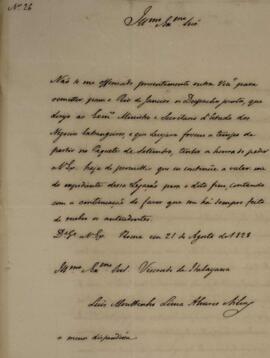 Nº 26
Illmo Exmo Snr
Não se me offerecendo presentemente outra via para
remetter para o Rio de Janeiro os Despachos juntos, que
dirijo ao Exmo Ministro e Secretario d'Estado dos
Negocios Estrangeiros, e que desejava fossem a tempo de
partir no Paquete de Setembro, tenho a honra de pedir
a V. Ex. haja de permittir que eu continue a valer-me
do expediente dessa Legação para o dito fim, contando
com a continuação do favor que me há sempre feito
de receber os antecedentes.
Ds. Ge. a V. Ex. Roma em 21 de Agosto de 1828
Illmo Exmo Snr. Visconde de Itabayana
Luis Moutinho Lima Alvares e Silva